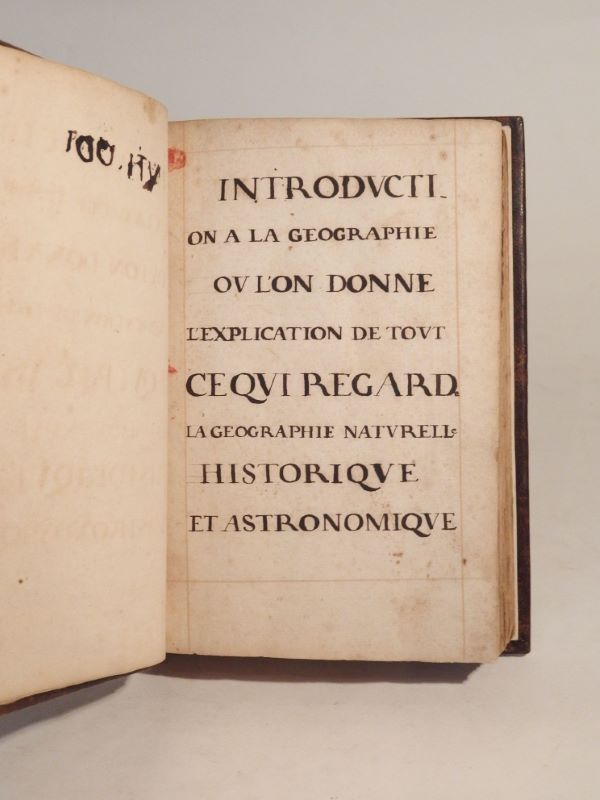 INTRODVCTI_
ON A LA GEOGRAPHIE
OV L'ON DONNE
L'EXPLICATION DE TOVT
CE QVI REGARDE
LA GEOGRAPHIE NATVRELLe
HISTORIQVE
ET ASTRONOMIQVE